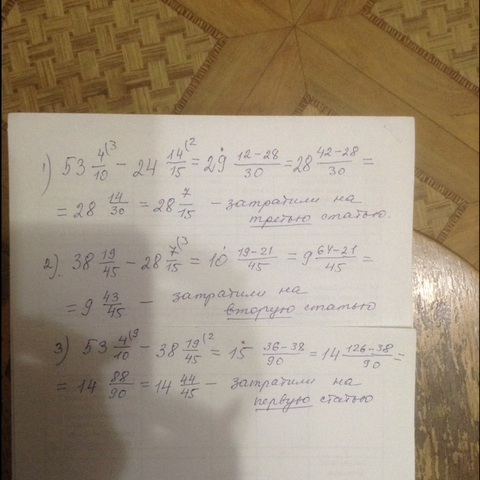 1) 53 4/10(3 − 24 14/15(2 = 29 12−28/30 = 28 42−28/30 =
= 28 14/30 = 28 7/15 − затратили на
третью статью.
2). 38 19/45 − 28 7/15(3 = 10 19−21/45 = 9 64−21/45 =
= 9 43/45 − затратили на
вторую статью
3) 53 4/10(9 − 38 19/45(2 = 15 36−38/90 = 14 126−38/90 =
= 14 88/90 = 14 44/45 − затратили на
первую статью